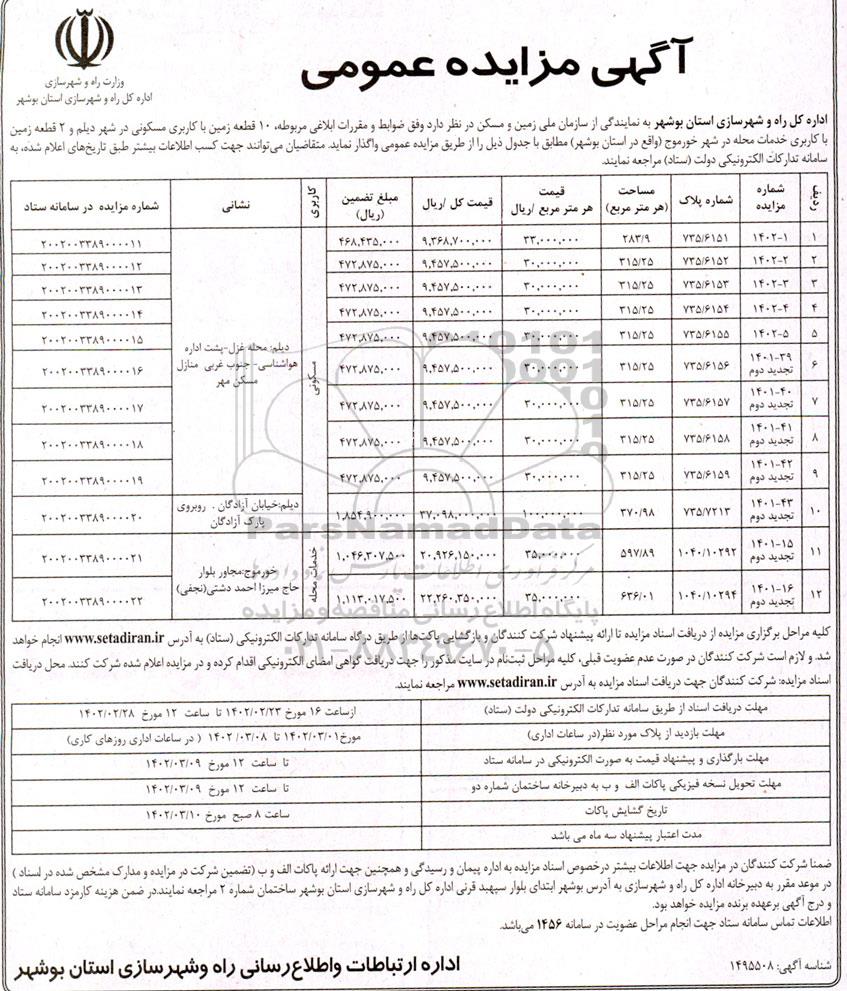 آگهی مزایده عمومی
وزارت راه و شهرسازی
اداره کل راه و شهرسازی استان بوشهر
اداره کل راه و شهرسازی استان بوشهر به نمایندگی از سازمان ملی زمین و مسکن در نظر دارد وفق ضوابط و مقررات ابلاغی مربوطه، ۱۰ قطعه زمین با کاربری مسکونی در شهر دیلم و ۲ قطعه زمین
با کاربری خدمات محله در شهر خورموج (واقع در استان بوشهر) مطابق با جدول ذیل را از طریق مزایده عمومی واگذار نماید. متقاضیان می‌توانند جهت کسب اطلاعات بیشتر طبق تاریخ‌های اعلام شده، به
سامانه تدارکات الکترونیکی دولت (ستاد) مراجعه نمایند.
ردیف شماره مزایده شماره پلاک مساحت (هر متر مربع) قیمت هر متر مربع /ریال قیمت کل /ریال مبلغ تضمین (ریال) کاربری نشانی شماره مزایده در سامانه ستاد
۱ ۱۴۰۲-۱ ۷۳۵/۶۱۵۱ ۲۸۳/۹ ۳۳,۰۰۰,۰۰۰ ۹,۳۶۸,۷۰۰,۰۰۰ ۴۶۸,۴۳۵,۰۰۰ ۲۰۰۲۰۰۳۳۸۹۰۰۰۰۱۱
۲ ۱۴۰۲-۲ ۷۳۵/۶۱۵۲ ۳۱۵/۲۵ ۳۰,۰۰۰,۰۰۰ ۹,۴۵۷,۵۰۰,۰۰۰ ۴۷۲,۸۷۵,۰۰۰ ۲۰۰۲۰۰۳۳۸۹۰۰۰۰۱۲
۳ ۱۴۰۲-۳ ۷۳۵/۶۱۵۳ ۳۱۵/۲۵ ۳۰,۰۰۰,۰۰۰ ۹,۴۵۷,۵۰۰,۰۰۰ ۴۷۲,۸۷۵,۰۰۰ ۲۰۰۲۰۰۳۳۸۹۰۰۰۰۱۳
۴ ۱۴۰۲-۴ ۷۳۵/۶۱۵۴ ۳۱۵/۲۵ ۳۰,۰۰۰,۰۰۰ ۹,۴۵۷,۵۰۰,۰۰۰ ۴۷۲,۸۷۵,۰۰۰ ۲۰۰۲۰۰۳۳۸۹۰۰۰۰۱۴
۵ ۱۴۰۲-۵ ۷۳۵/۶۱۵۵ ۳۱۵/۲۵ ۳۰,۰۰۰,۰۰۰ ۹,۴۵۷,۵۰۰,۰۰۰ ۴۷۲,۸۷۵,۰۰۰ ۲۰۰۲۰۰۳۳۸۹۰۰۰۰۱۵
۶ ۱۴۰۱-۳۹ تجدید دوم ۷۳۵/۶۱۵۶ ۳۱۵/۲۵ ۳۰,۰۰۰,۰۰۰ ۹,۴۵۷,۵۰۰,۰۰۰ ۴۷۲,۸۷۵,۰۰۰ ۲۰۰۲۰۰۳۳۸۹۰۰۰۰۱۶
۷ ۱۴۰۱-۴۰ تجدید دوم ۷۳۵/۶۱۵۷ ۳۱۵/۲۵ ۳۰,۰۰۰,۰۰۰ ۹,۴۵۷,۵۰۰,۰۰۰ ۴۷۲,۸۷۵,۰۰۰ ۲۰۰۲۰۰۳۳۸۹۰۰۰۰۱۷
۸ ۱۴۰۱-۴۱ تجدید دوم ۷۳۵/۶۱۵۸ ۳۱۵/۲۵ ۳۰,۰۰۰,۰۰۰ ۹,۴۵۷,۵۰۰,۰۰۰ ۴۷۲,۸۷۵,۰۰۰ ۲۰۰۲۰۰۳۳۸۹۰۰۰۰۱۸
۹ ۱۴۰۱-۴۲ تجدید دوم ۷۳۵/۶۱۵۹ ۳۱۵/۲۵ ۳۰,۰۰۰,۰۰۰ ۹,۴۵۷,۵۰۰,۰۰۰ ۴۷۲,۸۷۵,۰۰۰ ۲۰۰۲۰۰۳۳۸۹۰۰۰۰۱۹
مسکونی
دیلم: محله غزل-پشت اداره
هواشناسی- جنوب غربی منازل
مسکن مهر
۱۰ ۱۴۰۱-۴۳ تجدید دوم ۷۳۵/۷۲۱۳ ۳۷۰/۹۸ ۱۰۰,۰۰۰,۰۰۰ ۳۷,۰۹۸,۰۰۰,۰۰۰ ۱,۸۵۴,۹۰۰,۰۰۰ دیلم:خیابان آزادگان . روبروی پارک آزادگان ۲۰۰۲۰۰۳۳۸۹۰۰۰۰۲۰
۱۱ ۱۴۰۱-۱۵ تجدید دوم ۱۰۴۰/۱۰۲۹۲ ۵۹۷/۸۹ ۳۵,۰۰۰,۰۰۰ ۲۰,۹۲۶,۱۵۰,۰۰۰ ۱,۰۴۶,۳۰۷,۵۰۰ ۲۰۰۲۰۰۳۳۸۹۰۰۰۰۲۱
۱۲ ۱۴۰۱-۱۶ تجدید دوم ۱۰۴۰/۱۰۲۹۴ ۶۳۶/۰۱ ۳۵,۰۰۰,۰۰۰ ۲۲,۲۶۰,۳۵۰,۰۰۰ ۱,۱۱۳,۰۱۷,۵۰۰ ۲۰۰۲۰۰۳۳۸۹۰۰۰۰۲۲
خدمات محله
خورموج:مجاور بلوار
حاج میرزا احمد دشتی(نجفی)
ParsNamadData
پایگاه اطلاع رسانی مناقصه و مزایده
۰۲۱-۸۸۳۴۹۶۷۰-۵
کلیه مراحل برگزاری مزایده از دریافت اسناد مزایده تا ارائه پیشنهاد شرکت کنندگان و بازگشایی پاکت‌ها از طریق درگاه سامانه تدارکات الکترونیکی (ستاد) به آدرس www.setadiran.ir انجام خواهد
شد. و لازم است شرکت کنندگان در صورت عدم عضویت قبلی، کلیه مراحل ثبت‌نام در سایت مذکور را جهت دریافت گواهی امضای الکترونیکی اقدام کرده و در مزایده اعلام شده شرکت کنند. محل دریافت
اسناد مزایده: شرکت کنندگان جهت دریافت اسناد مزایده به آدرس www.setadiran.ir مراجعه نمایند.
مهلت دریافت اسناد از طریق سامانه تدارکات الکترونیکی دولت (ستاد) ازساعت ۱۶ مورخ ۱۴۰۲/۰۲/۲۳ تا ساعت ۱۲ مورخ ۱۴۰۲/۰۲/۲۸
مهلت بازدید از پلاک مورد نظر(در ساعات اداری) مورخ ۱۴۰۲/۰۳/۰۱ تا ۱۴۰۲/۰۳/۰۸ ( در ساعات اداری روزهای کاری)
مهلت بارگذاری و پیشنهاد قیمت به صورت الکترونیکی در سامانه ستاد تا ساعت ۱۲ مورخ ۱۴۰۲/۰۳/۰۹
مهلت تحویل نسخه فیزیکی پاکات الف و ب به دبیرخانه ساختمان شماره دو تا ساعت ۱۲ مورخ ۱۴۰۲/۰۳/۰۹
تاریخ گشایش پاکات ساعت ۸ صبح مورخ ۱۴۰۲/۰۳/۱۰
مدت اعتبار پیشنهاد سه ماه می باشد
ضمنا شرکت کنندگان در مزایده جهت اطلاعات بیشتر درخصوص اسناد مزایده به اداره پیمان و رسیدگی و همچنین جهت ارائه پاکات الف و ب (تضمین شرکت در مزایده و مدارک مشخص شده در اسناد )
در موعد مقرر به دبیرخانه اداره کل راه و شهرسازی به آدرس بوشهر ابتدای بلوار سپهبد قرنی اداره کل راه و شهرسازی استان بوشهر ساختمان شماره ۲ مراجعه نمایند.در ضمن هزینه کارمزد سامانه ستاد
و درج آگهی برعهده برنده مزایده خواهد بود.
اطلاعات تماس سامانه ستاد جهت انجام مراحل عضویت در سامانه ۱۴۵۶ می‌باشد.
شناسه آگهی: ۱۴۹۵۵۰۸
اداره ارتباطات و اطلاع رسانی راه و شهرسازی استان بوشهر